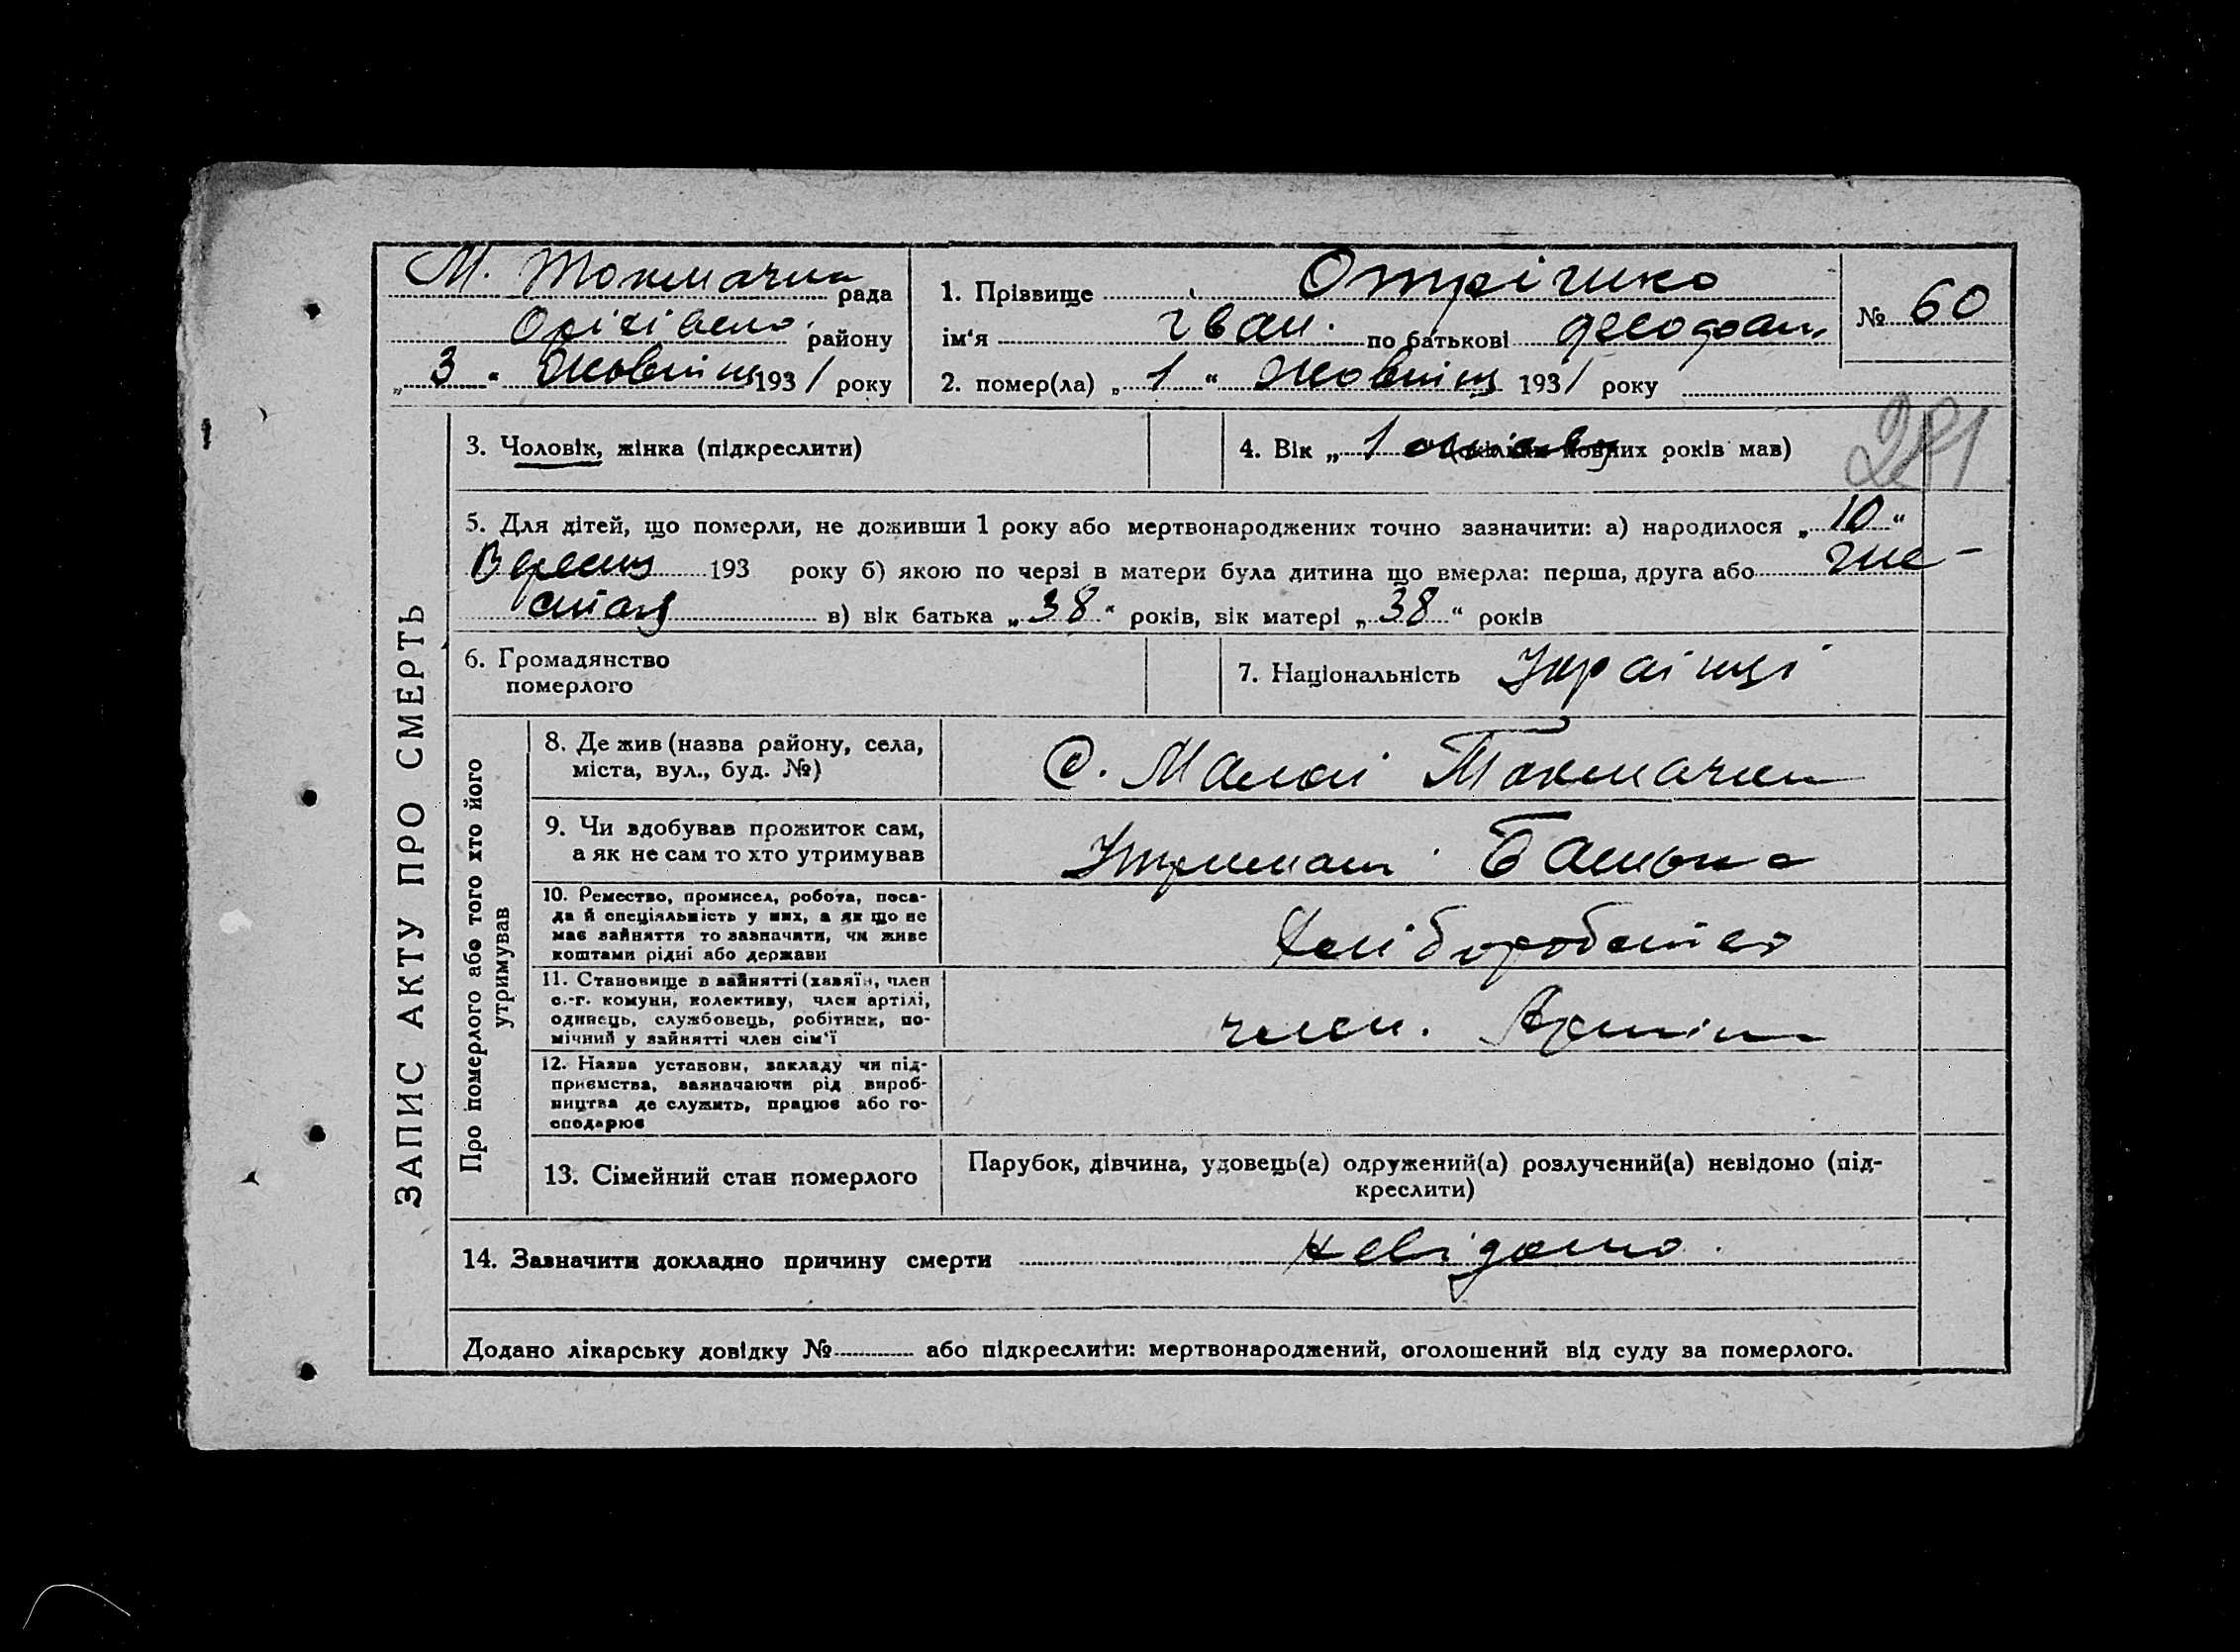 М. Токмачка рада
Оріхівсько. району
„ 3 “ Жовтня 1931 року
1. Прізвище Отрішко
ім‘я Іван. по батькові
2. помер(ла) „ 1 “ Жовтня 1931 року
№ 60
281
ЗАПИС АКТУ ПРО СМЕРТЬ
3. Чоловік, жінка (підкреслити)
4. Вік „ 1 (скільки повних років мав)
5. Для дітей, що померли, не доживши 1 року або мертвонароджених точно зазначити: а) народилося „ 10 “
Вересня 193 року б) якою по черзі в матери була дитина що вмерла: перша, друга або ше-
стая в) вік батька „ 38 “ років, вік матері „ 38 “ років
6. Громадянство
померлого
7. Національність Українці
Про померлого або того хто його
утримував
8. Де жив (назва району, села,
міста, вул., буд. №)
С. Малої Токмачки
9. Чи вдобував прожиток сам,
а як не сам то хто утримував
Утриманн Батька
10. Ремество, промисел, робота, поса-
да й спеціяльність у них, а як що не
має зайняття то зазначити, чи живе
коштами рідні або держави
Хліборобство
11. Становище в зайнятті (хазяїн, член
с.-г. комуни, колективу, член артілі,
одинець, службовець, робітник, по-
мічний у зайнятті член сім'ї
член. Артіли
12. Назва установи, закладу чи під-
приємства, зазначаючи рід вироб-
ництва де служить, працює або го-
сподарює
13. Сімейний стан померлого
Парубок, дівчина, удовець(а) одружений(а) розлучений(а) невідомо (під-
креслити)
14. Зазначити докладно причину смерти Невідомо.
Додано лікарську довідку № або підкреслити: мертвонароджений, оголошений від суду за померлого.